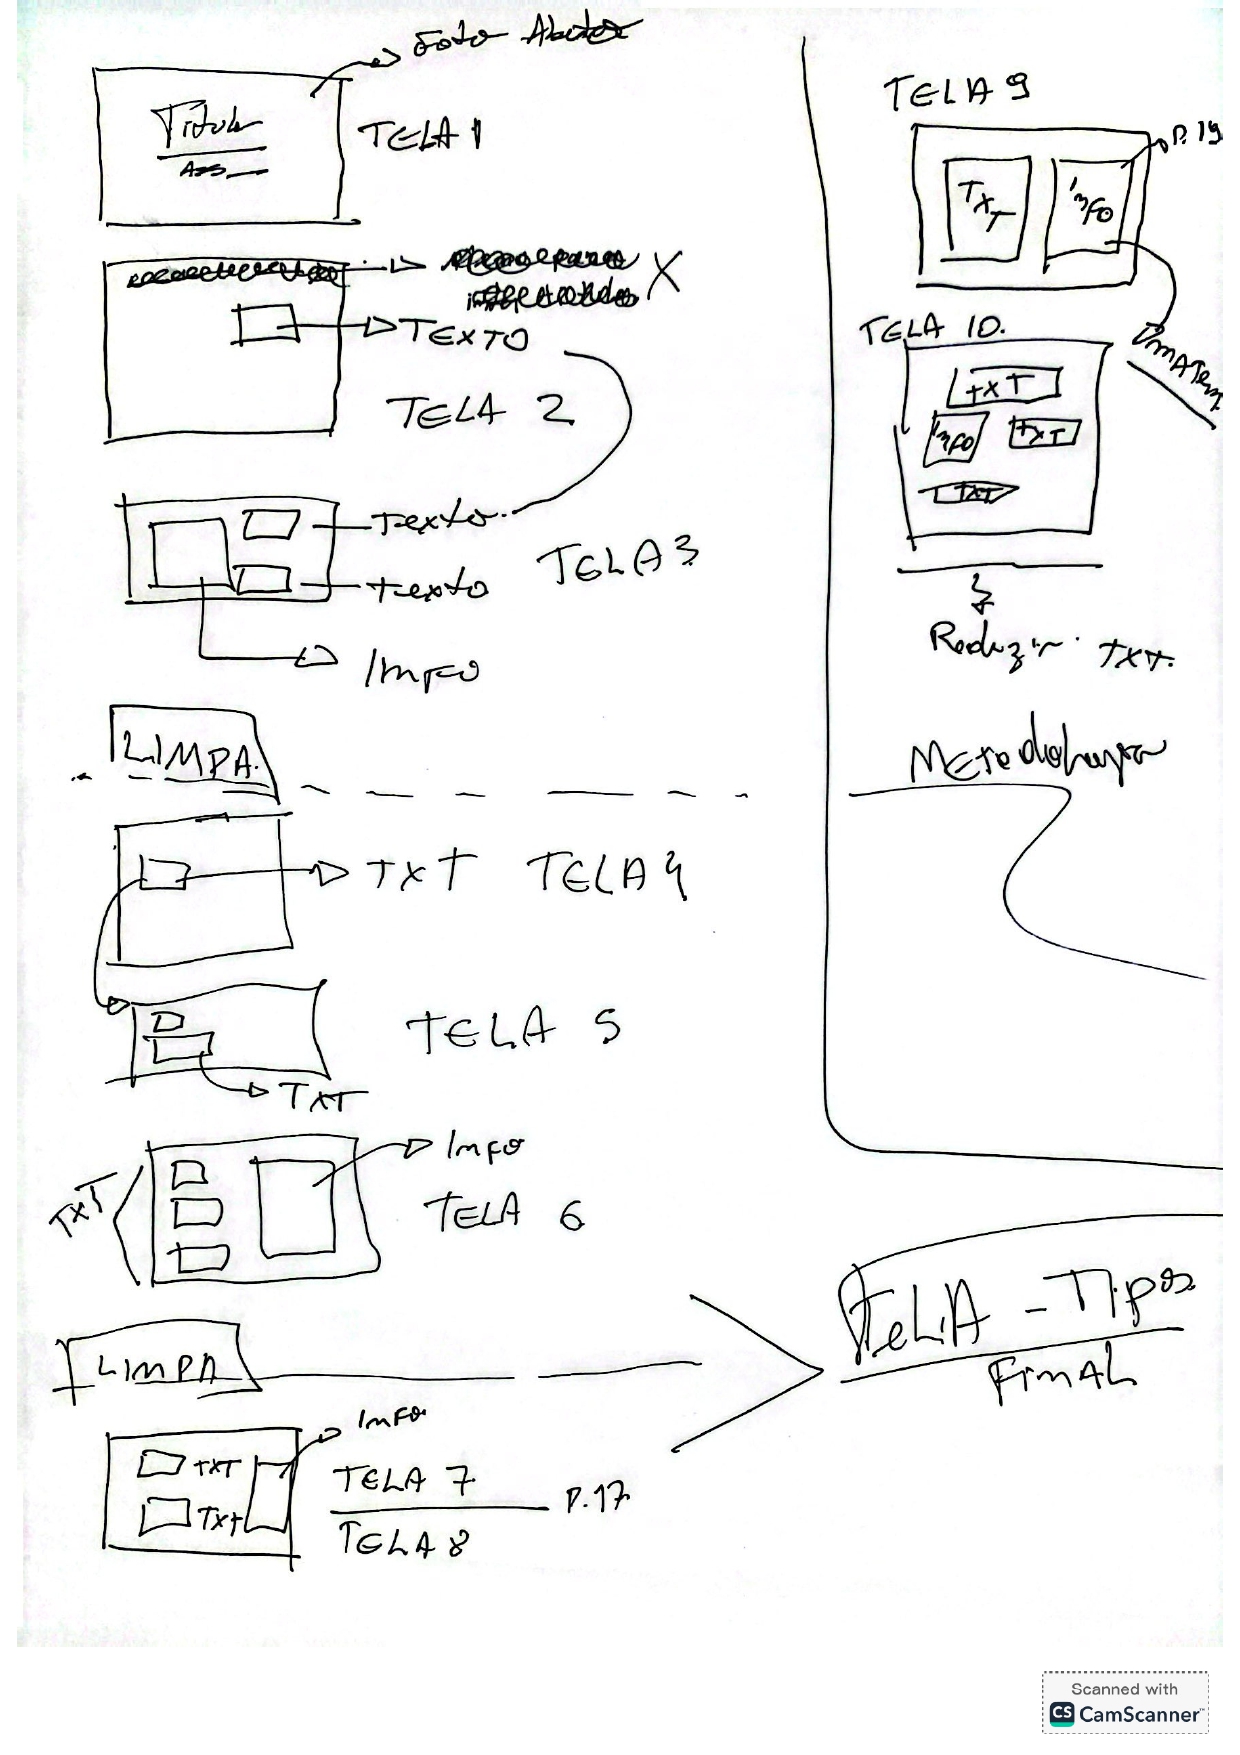 Foto Abertor
Título
Ass
TELA 1
X
TEXTO
TELA 2
Texto
Texto
TELA 3
Info
LIMPA.
TXT TELA 4
TELA 5
TXT
Info
TXT
TELA 6
LIMPA
Info
TXT
TXT
TELA 7
TELA 8
P.17
TELA 9
P. 19
TXT
info
TELA 10.
TXT
info
TXT
TXT
Reduzir TXT.
Metodologia
TELA - Tipos
Final
Scanned with
CS CamScanner